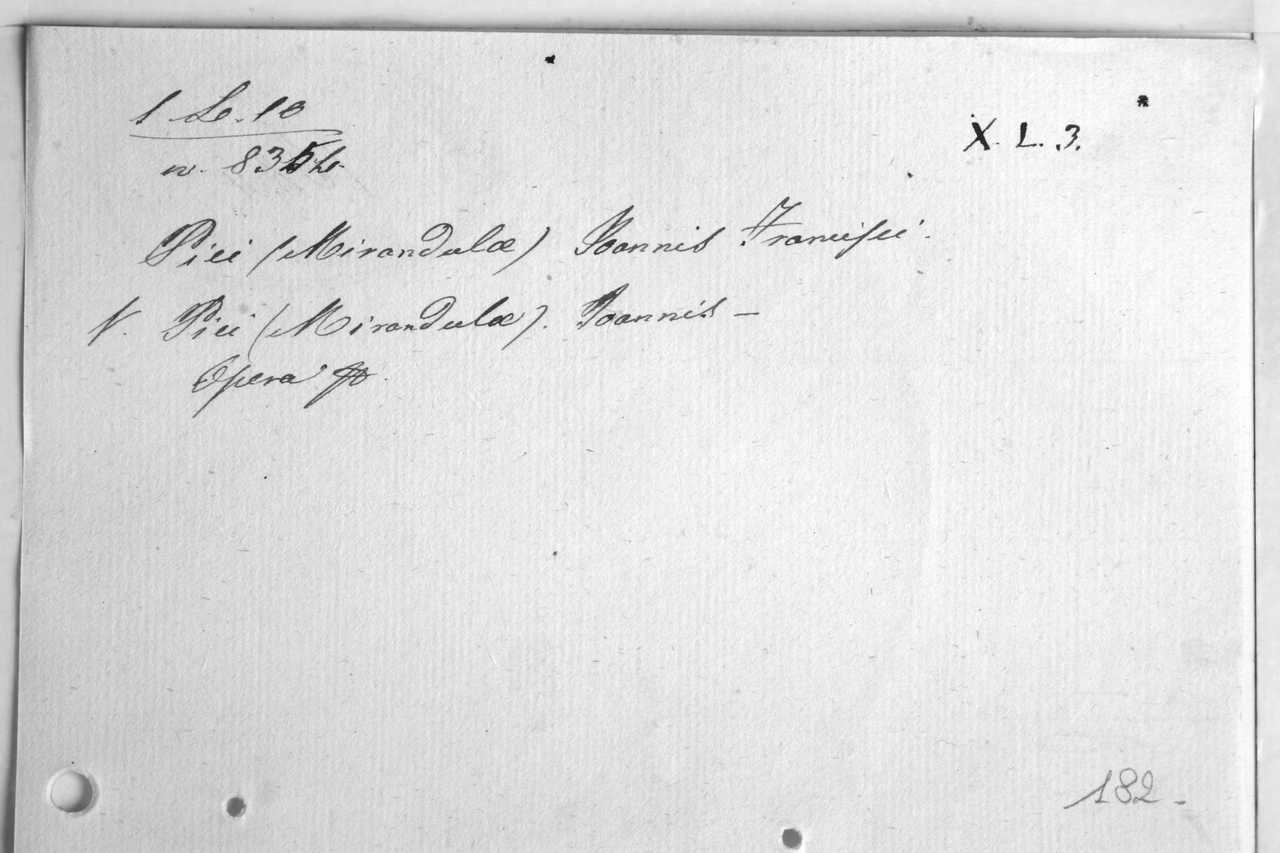 1. Le. 10
X. L. 3.
n. 835 b.
Pici (Mirandulæ) Joannis Francisci.
V. Pici (Mirandulæ). Joannis –
Opera
182 -